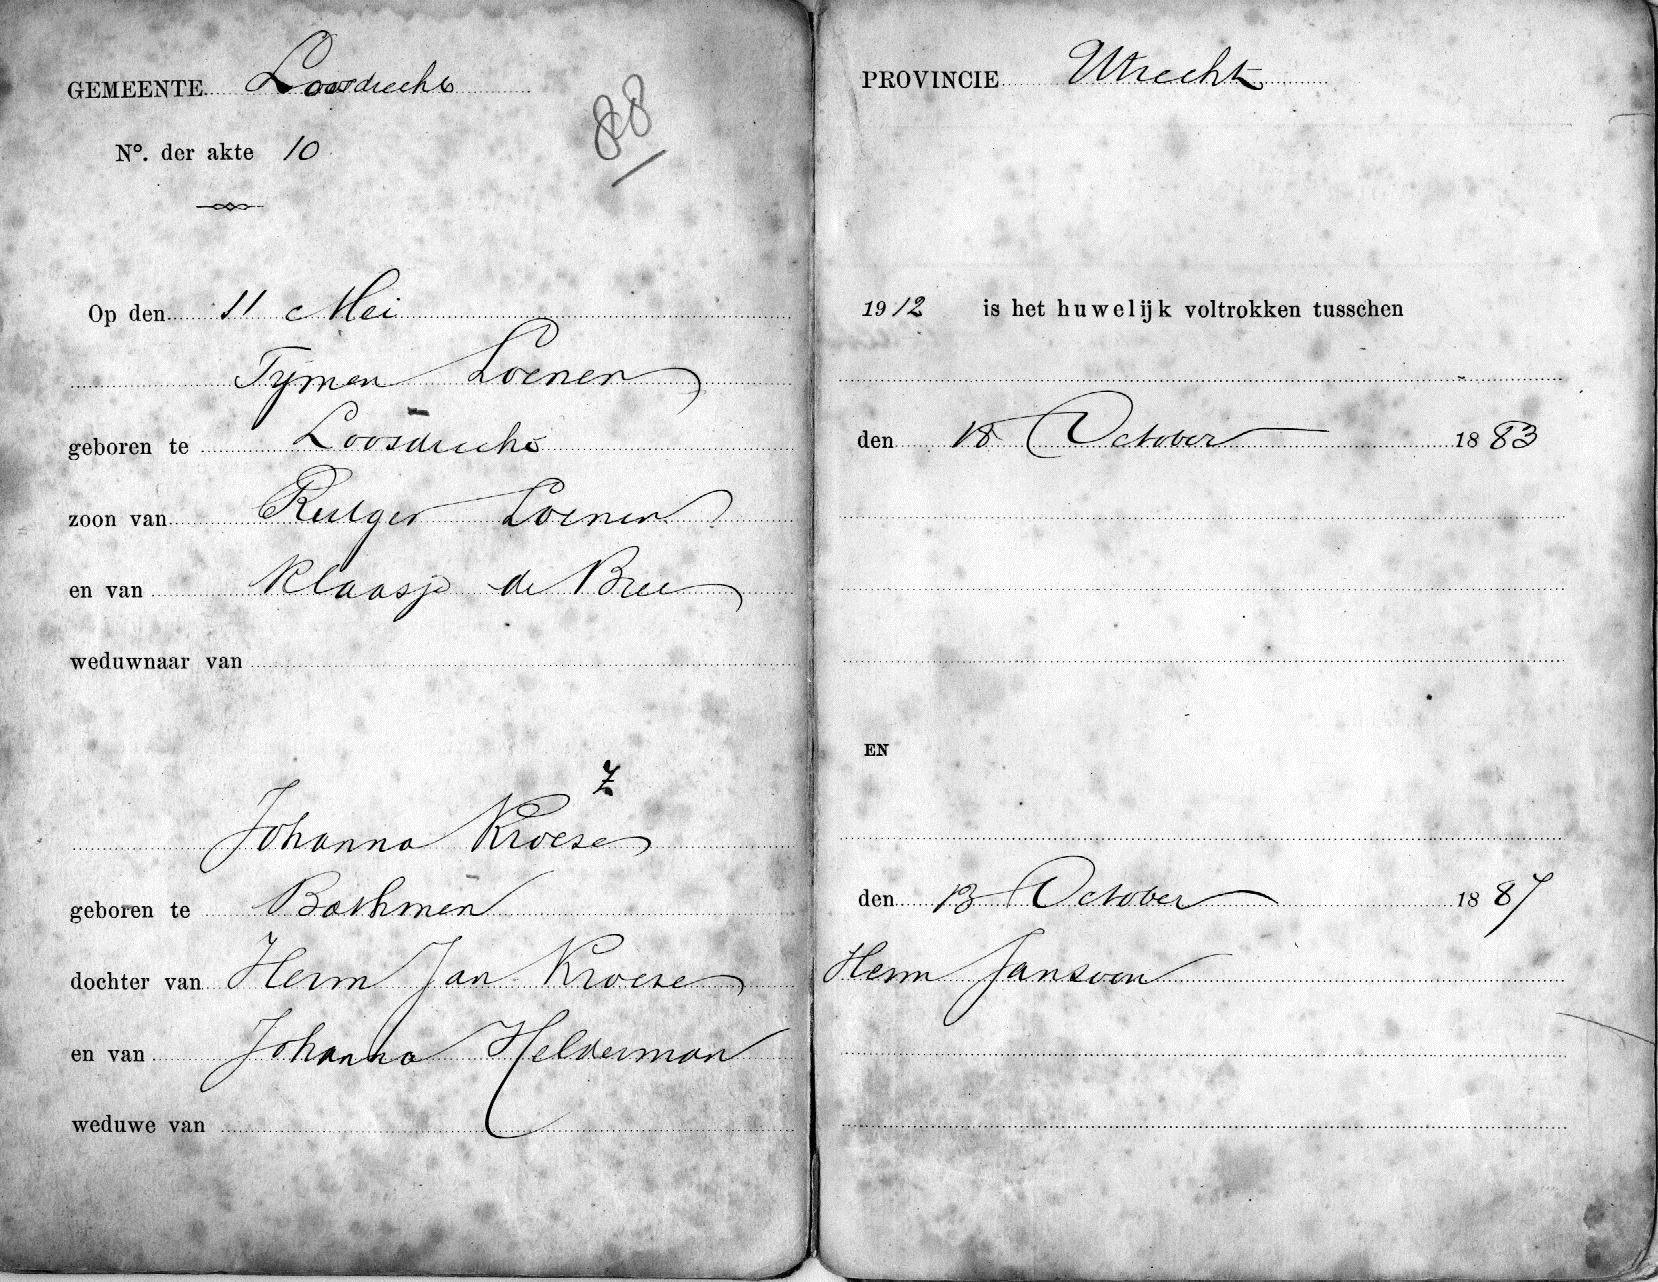 GEMEENTE Loosdrecht
88
N°. der akte 10
Op den 11 Mei
Tijmen Loenen
geboren te Loosdrecht
zoon van Rutger Loenen
en van Klaasje de Bree
weduwnaar van
Z
Johanna Kroese
geboren te Bathmen
dochter van Herm Jan Kroese
en van Johanna Helderman
weduwe van
PROVINCIE Utrecht
1912 is het huwelijk voltrokken tusschen
den 18 October 1883
EN
den 13 October 1887
Herm Janszoon